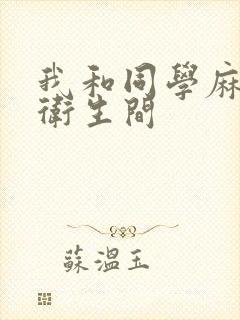 我和同學麻
衛生間
蘇溫玉